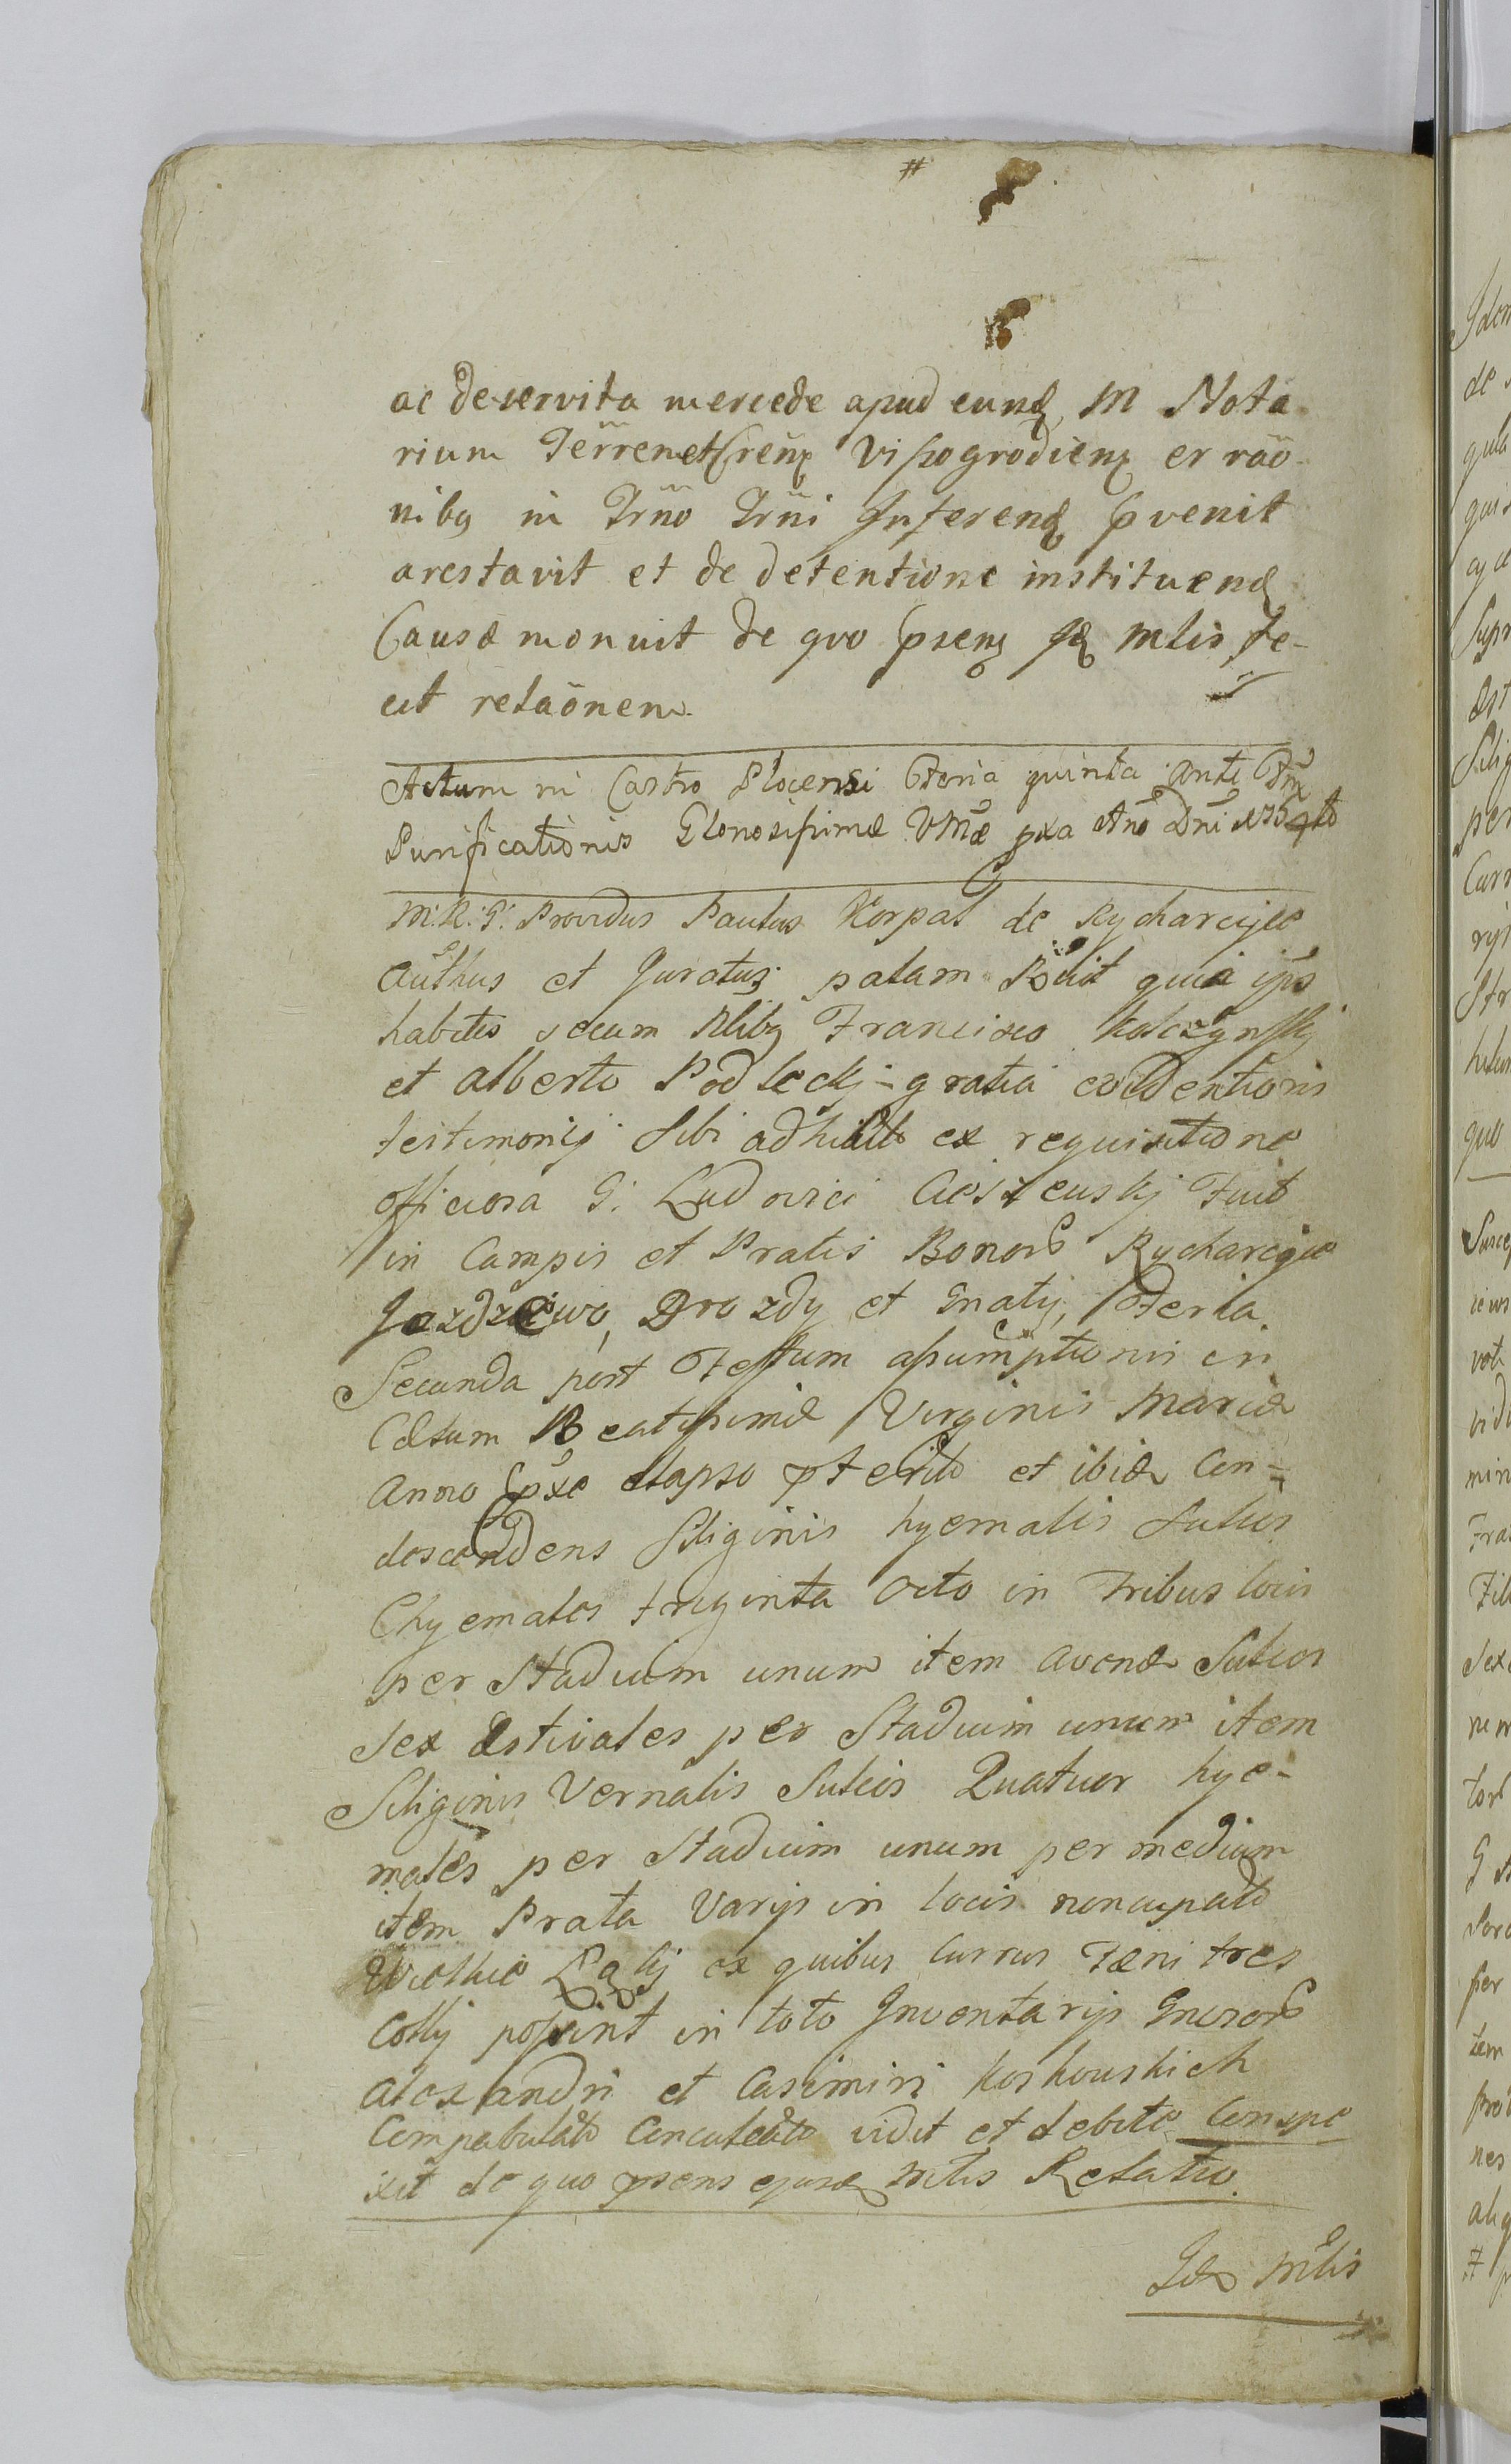 #
ac deservita mercede apud eund M Nota
rium Terren et Cren Vissogrodien er rao
nibq in Trno Trni Inferend pvenit
arestavit et de detentione instituend
Causæ monuit de quo psens Jd Mlis fe-
cit relaonem.
Actum in Castro Plocensi Feria quinta ante Ftm
Purificationis Gloriosissimæ VMæ pxa Ano Dni
M: R: G: Providus Paulus Korpal de Rycharcice
authus et Juratus palam Rcuit quia ips
habitis secum Nlibq Francisco Kolczynskj
et Alberto Podleckj gratia evidentioris
testimonij sibi adhibit ex requisitione
officiosa G: Ludovici Cieszeuskj Fuit
in Campis et Pratis Bonor Rycharcice
Jozdzcewo, Drozdy et Gnaty, Feria
Secunda post Festum assumptionis in
Cælum Beatissimæ Virginis Mariæ
Anno pxe elapso pterito et ibid Con-
descendens Siliginis hyemalis Sulcos
Chyemales triginta octo in Tribus locis
per Stadium unum item avenæ Sulcos
sex Æstivales per Stadium unum item
Siliginis Vernalis Sulcos Quatuor hye-
males per Stadium unum per medium
item Prata Varijs in locis nuncupat
Wielkie Lakj ex quibus Currus Fæni tres
Colligi possint in toto Inventarijs Gneror
Alexandri et Casimiri Koskouskich
Compabulat Conculcat vidit et debite Conspe
xit de quo psens ejusd Mlis Relatio.
Jd Mlis